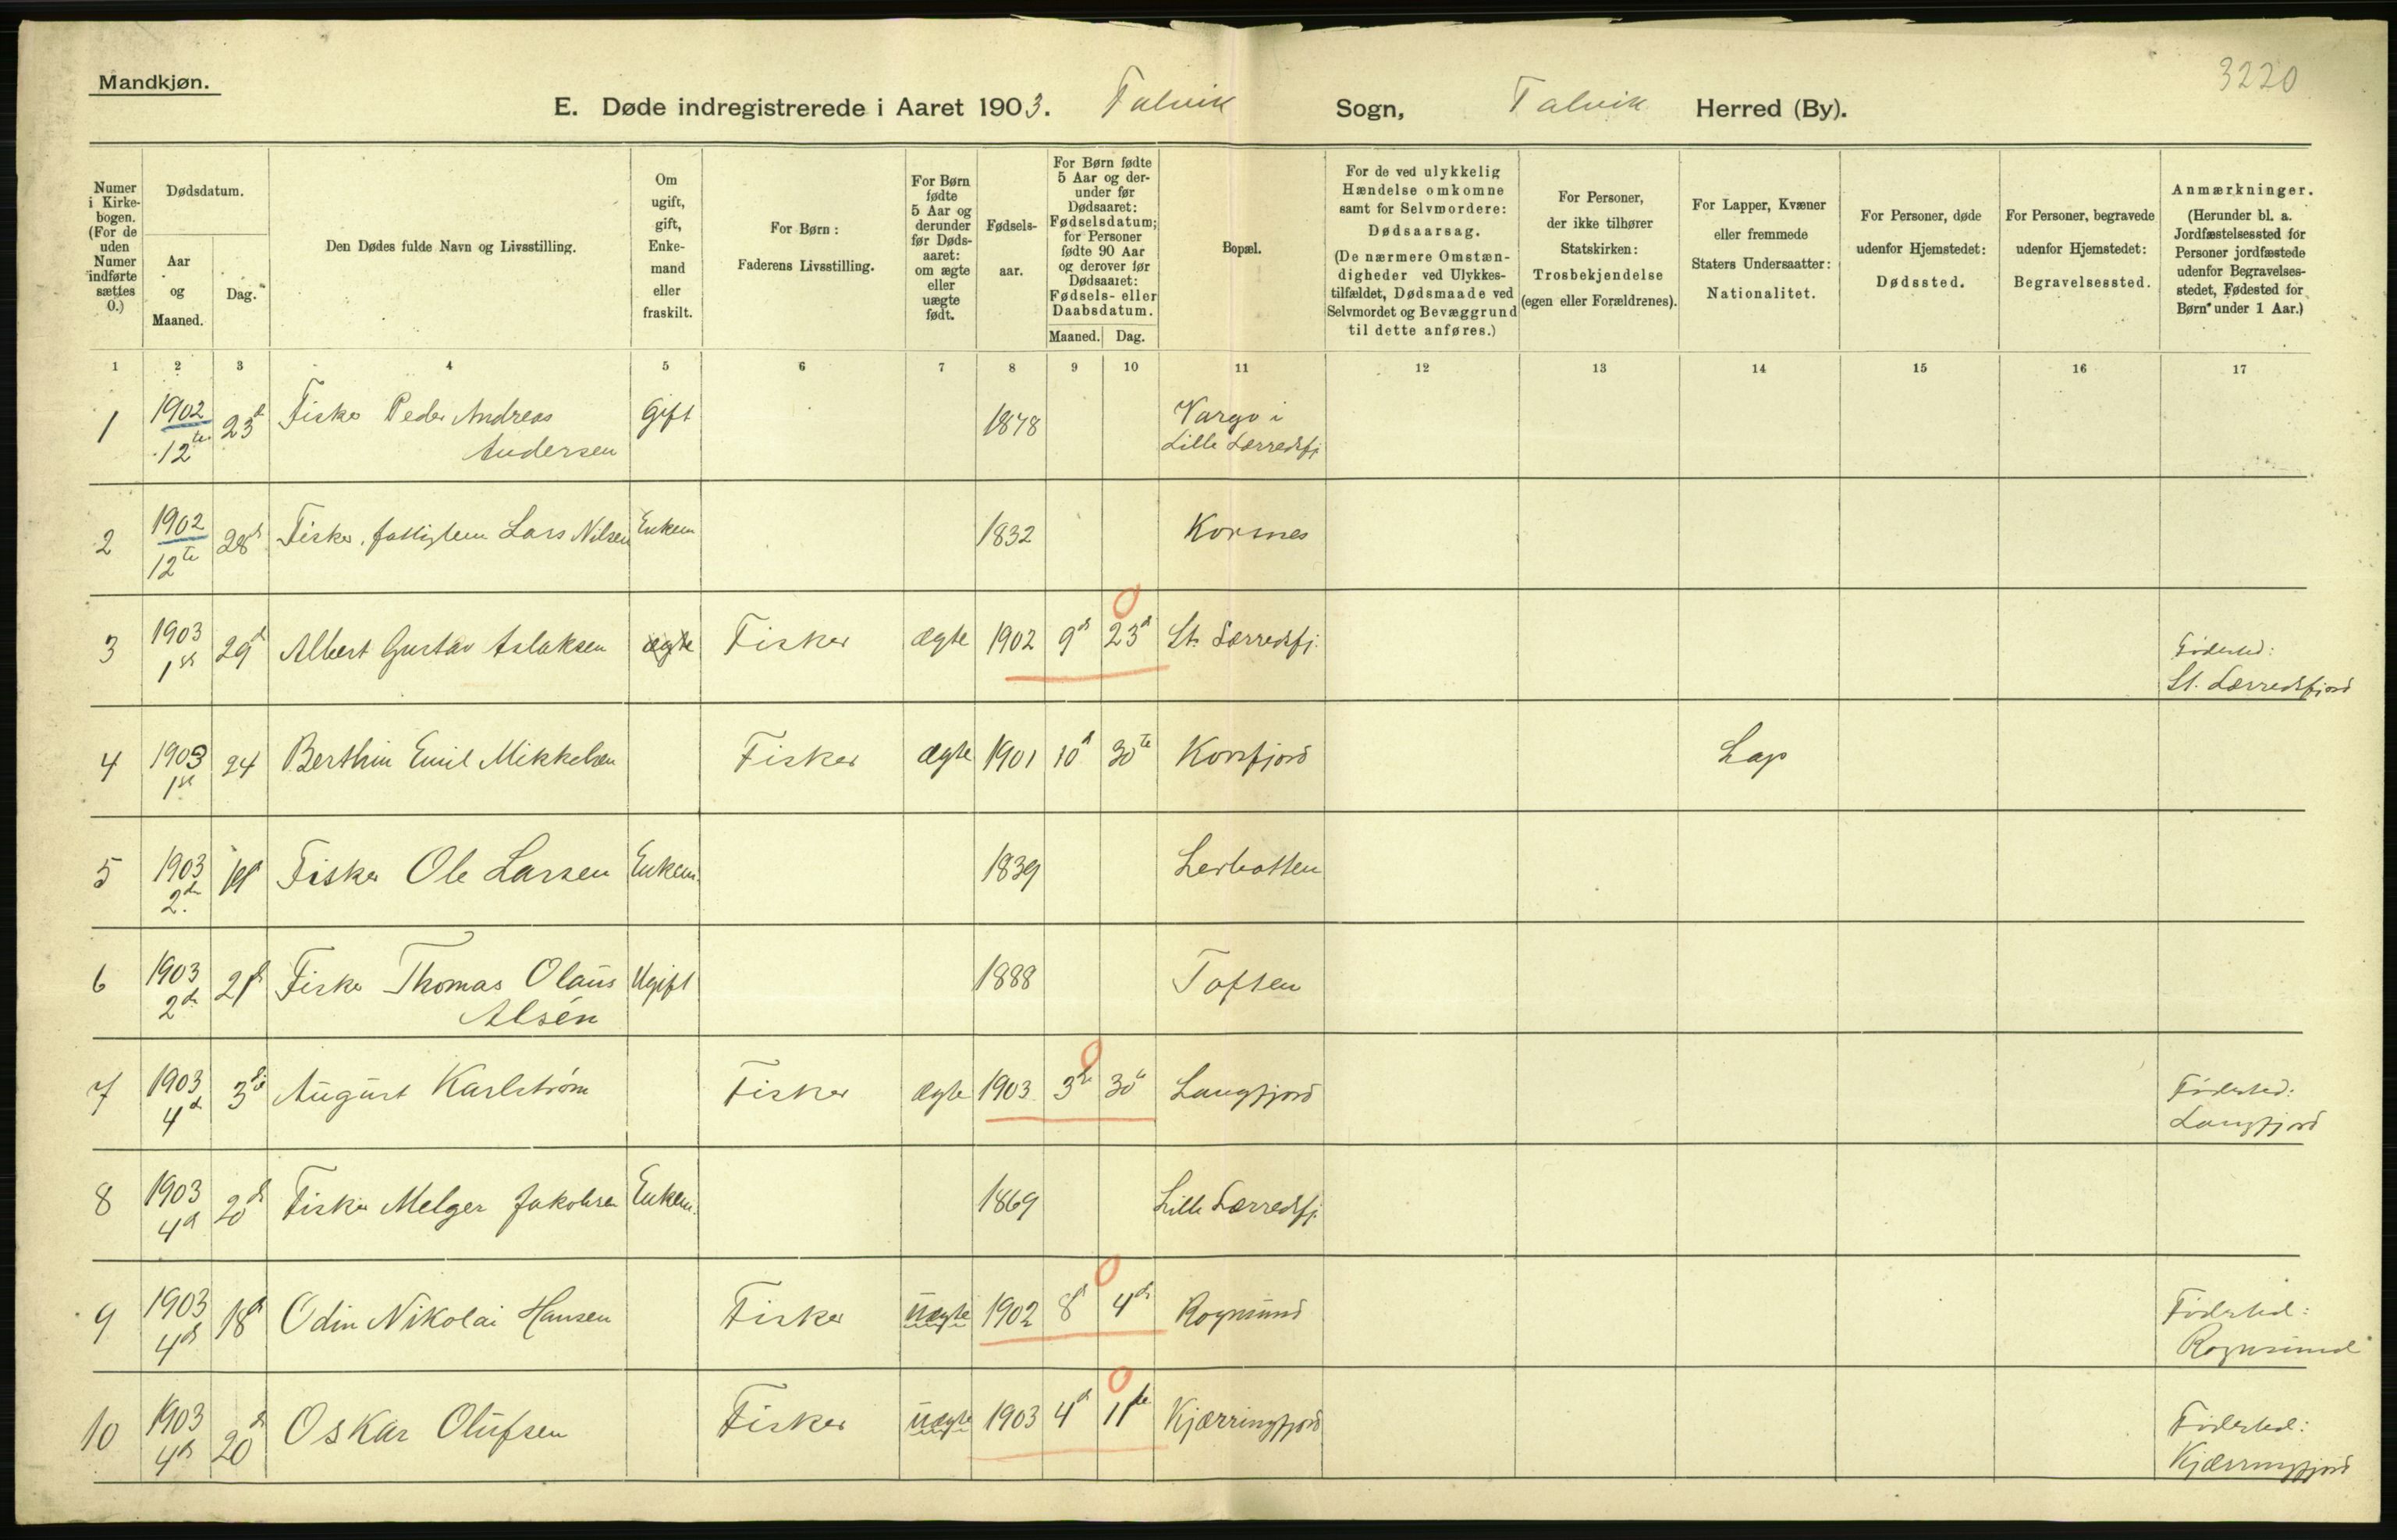 3220
Mandkjøn.
E. Døde indregistrerede i Aaret 1903. Talvik Sogn, Talvik Herred (By).
Numer i Kirkebogen. (For de uden Numer indførte sættes 0.)
Dødsdatum.
Aar og Maaned.
Dag.
Den Dødes fulde Navn og Livsstilling.
Om ugift, gift, Enkemand eller fraskilt.
For Børn: Faderens Livsstilling.
For Børn fødte 5 Aar og derunder før Dødsaaret: om ægte eller uægte født.
Fødselsaar.
For Børn fødte 5 Aar og derunder før Dødsaaret: Fødselsdatum; for Personer fødte 90 Aar og derover før Dødsaaret: Fødsels- eller Daabsdatum.
Maaned. Dag.
Bopæl.
For de ved ulykkelig Hændelse omkomne samt for Selvmordere: Dødsaarsag. (De nærmere Omstændigheder ved Ulykkestilfældet, Dødsmaade ved Selvmordet og Bevæggrund til dette anføres.)
For Personer, der ikke tilhører Statskirken: Trosbekjendelse (egen eller Forældrenes).
For Lapper, Kvæner eller fremmede Staters Undersaatter: Nationalitet.
For Personer, døde udenfor Hjemstedet: Dødssted.
For Personer, begravede udenfor Hjemstedet: Begravelsessted.
Anmærkninger. (Herunder bl. a. Jordfæstelsessted for Personer jordfæstede udenfor Begravelsesstedet, Fødested for Børn under 1 Aar.)
1 2 3 4 5 6 7 8 9 10 11 12 13 14 15 16 17
1 1902 12te 23d Fisker Peder Andreas Andersen Gift 1878 Vargo i Lille Lerredsfj.
2 1902 12te 28d Fisker, fattiglem Lars Nilsen Enkem 1832 Korsnes
3 1903 1ste 29d Albert Gustav Aslaksen ægte Fisker ægte 1902 9d 23d St. Lerredsfj. Fødested: St. Lerredsfjord
4 1903 1ste 24 Berthin Emil Mikkelsen Fisker ægte 1901 10d 30te Korsfjord Lap
5 1903 2den Fisker Ole Larsen Enkem. 1839 Lerbotten
6 1903 2den 21d Fisker Thomas Olaus Alsén Ugift 1888 Toften
7 1903 4d August Karlstrøm Fisker ægte 1903 30te Langfjord Fødested: Langfjord
8 1903 4d 20d Fisker Melger Jakobsen Enkem. 1869 Lille Lerredsfj.
9 1903 4d 18d Odin Nikolai Hansen Fisker uægte 1902 8d 4de Rognsund Fødested: Rognsund
10 1903 4d 20d Oskar Olufsen Fisker uægte 1903 4d 11te Kjærringfjord Fødested: Kjærringfjord